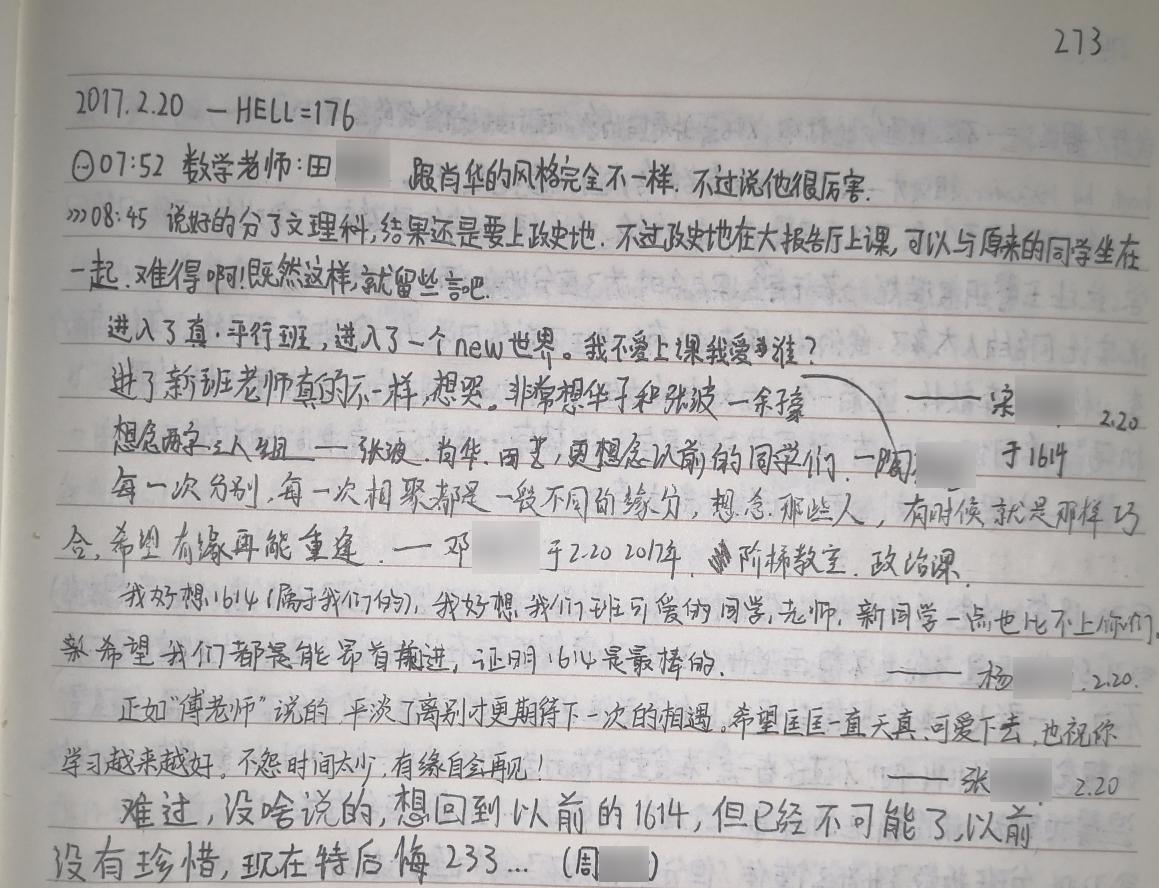 273
2017.2.20 — HELL=176
07:52 数学老师:田 跟肖华的风格完全不一样. 不过说他很厉害.
>>>08:45 说好的分了文理科,结果还是要上政史地. 不过政史地在大报告厅上课,可以与原来的同学坐在
一起.难得啊!既然这样,就留些言吧.
进入了真·平行班,进入了一个new世界。我不爱上课我爱谁?
—— 梁 2.20
进了新班老师真的不一样,想哭。非常想华子和张波 —余子豪
想念两字三人组 — 张波.肖华.田芸,更想念以前的同学们. —陶 于1614
每一次分别,每一次相聚都是一段不同的缘分,想念那些人,有时候就是那样巧
合,希望有缘再能重逢. — 邓 于2.20 2017年. 阶梯教室.政治课.
我好想1614(属于我们的),我好想我们班可爱的同学,老师,新同学一点也比不上你们.
希望我们都是能昂首前进,证明1614是最棒的. —— 杨 .2.20.
正如“傅老师”说的 平淡了离别才更期待下一次的相遇。希望匡匡一直天真.可爱下去,也祝你
学习越来越好。不怨时间太少,有缘自会再见! —— 张 2.20
难过,没啥说的,想回到以前的1614,但已经不可能了,以前
没有珍惜,现在特后悔233... (周 )